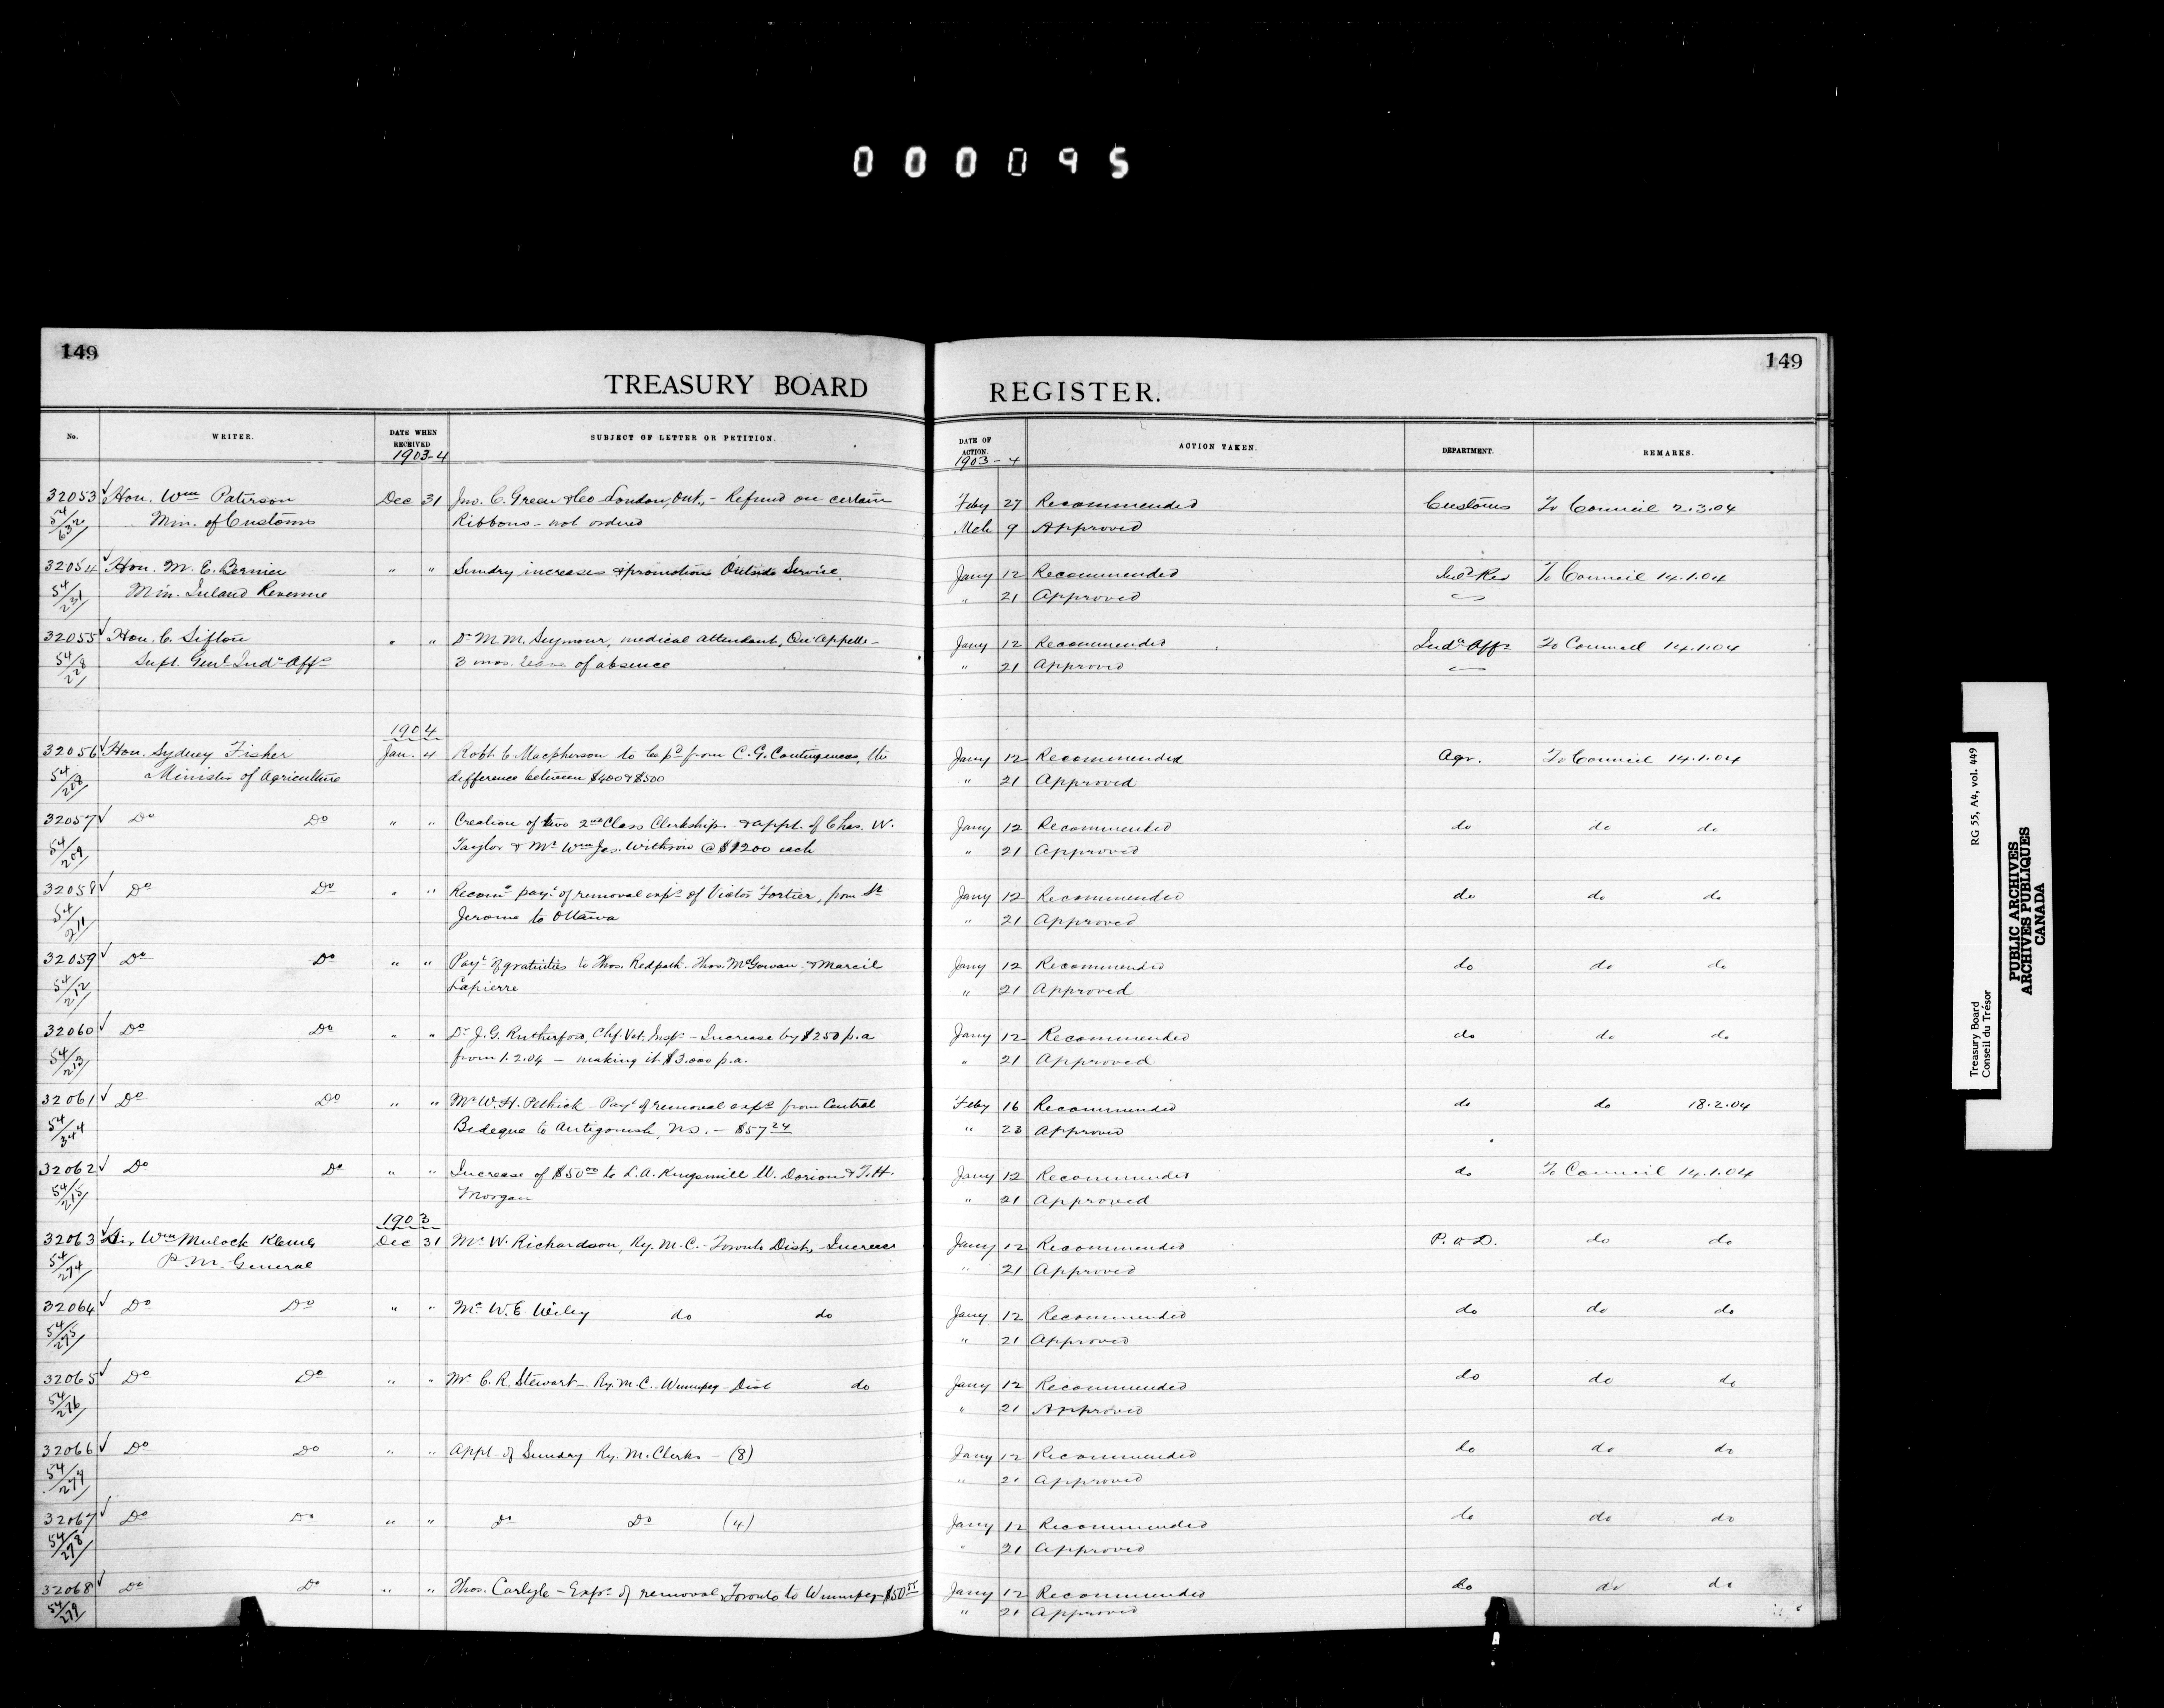 000095
149
149
TREASURY BOARD REGISTER.
No. WRITER. DATE WHEN RECEIVED 1903-4 SUBJECT OF LETTER OR PETITION. DATE OF ACTION. 1903-4 ACTION TAKEN. DEPARTMENT. REMARKS.
32053 ✓ Hon. Wm Paterson Dec 31 Jno. C. Green & Co London, Ont., - Refund on certain Feby 27 Recommended Customs To Council 2.3.04
54/632 Min. of Customs Ribbons - not ordered Mch 9 Approved
32054 ✓ Hon. M. E. Bernier " " Sundry increases & promotions Outside Service. Jany 12 Recommended Inld Rev To Council 14.1.04
54/231 Min. Inland Revenue " 21 Approved
32055 ✓ Hon. C. Sifton " " Dr M. M. Seymour, medical attendant, Qu'Appelle - Jany 12 Recommended Indn Affs To Council 14.1.04
54/228 Supt. Genl Indn Affs 3 mos. leave of absence " 21 Approved
1904
32056 ✓ Hon. Sydney Fisher Jan. 4 Robt. C. Macpherson to be pd from C. G. Contingencies, the Jany 12 Recommended Agr. To Council 14.1.04
54/208 Minister of Agriculture difference between $400 & $500 " 21 Approved
32057 ✓ Do Do " " Creation of two 2nd Class Clerkships - & appt. of Chas. W. Jany 12 Recommended do do do
54/209 Taylor & Mr Wm Jas. Withrow @ $1200 each " 21 Approved
32058 ✓ Do Do " " Recomd payt of removal exps of Victor Fortier, from St Jany 12 Recommended do do do
54/211 Jerome to Ottawa " 21 Approved
32059 ✓ Do Do " " Payt of gratuities to Thos. Redpath - Thos. McGowan - & Marcil Jany 12 Recommended do do do
54/212 Lapierre " 21 Approved
32060 ✓ Do Do " " Dr J. G. Rutherford, Chf. Vet. Insp - Increase by $250 p.a Jany 12 Recommended do do do
54/213 from 1.2.04 - making it $3.000 p.a. " 21 Approved
32061 ✓ Do Do " " Mr W. H. Pethick - Payt of removal exps from Central Feby 16 Recommended do do 18.2.04
54/344 Bedeque to Antigonish, N.S. - $57 24 " 23 Approved
32062 ✓ Do Do " " Increase of $50 00 to L. A. Kingsmill W. Dorion & Morgan Jany 12 Recommended do To Council 14.1.04
54/215 " 21 Approved
1903
32063 ✓ Sir Wm Mulock Dec 31 Mr W. Richardson, Ry. M. C. - Toronto Dist. - Increase Jany 12 Recommended P. O. D. do do
54/274 P. M. General " 21 Approved
32064 ✓ Do Do " " Mr W. E. Wiley do do Jany 12 Recommended do do do
54/275 " 21 Approved
32065 ✓ Do Do " " Mr C. R. Stewart - Ry. M. C. - Winnipeg - Dist do Jany 12 Recommended do do do
54/276 " 21 Approved
32066 ✓ Do Do " " Appt - of Sundry Ry. M. Clerks - (8) Jany 12 Recommended do do do
54/277 " 21 Approved
32067 ✓ Do Do " " Do Do (4) Jany 12 Recommended do do do
54/278 " 21 Approved
32068 ✓ Do Do " " Thos. Carlyle - Exps of removal, Toronto to Winnipeg - $50 55 Jany 12 Recommended do do do
54/279 " 21 Approved
Treasury Board RG 55, A4, vol. 449
Conseil du Trésor
PUBLIC ARCHIVES
ARCHIVES PUBLIQUES
CANADA